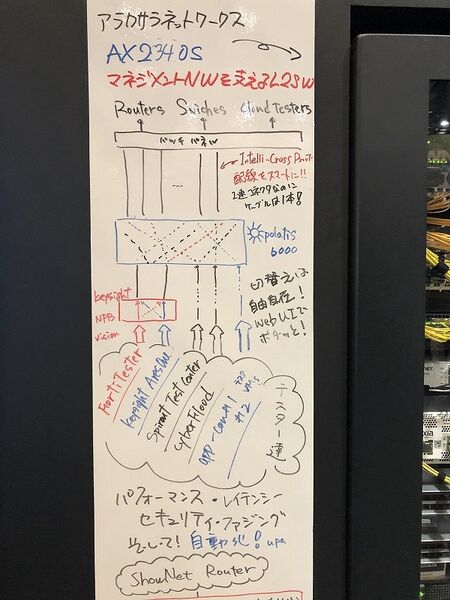 アラクサラネットワークス
AX2340S
マネジメントNWを支えるL2SW
Routers Swiches Cloud testers
パッチパネル
Intelli-Cross
配線をスマートに!!
2連コネクタなのに
ケーブルは1本!
polatis
6000
keysight
NPB
vision
切替えは
自由自在!
Web UIで
ポチッと!
FortiTester
Keysight AresOne
Spirent TestCenter
CyberFlood
#2
テスター達
パフォーマンス・レイテンシー
セキュリティ・ファジング
そして! 自動化! upa
ShowNet Router